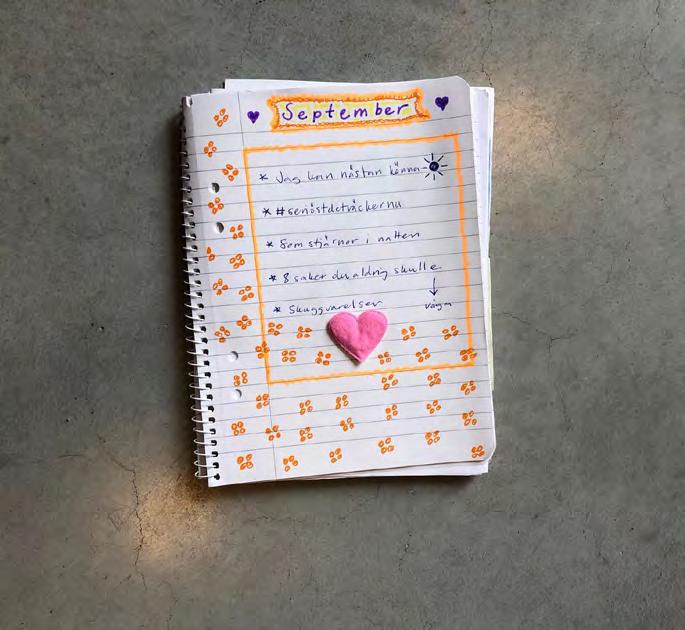 September
* Jag kan nästan känna
* #senöstdeträckernu
* Som stjärnor i natten
* 8 saker du aldrig skulle
våga
* Skuggvarelser